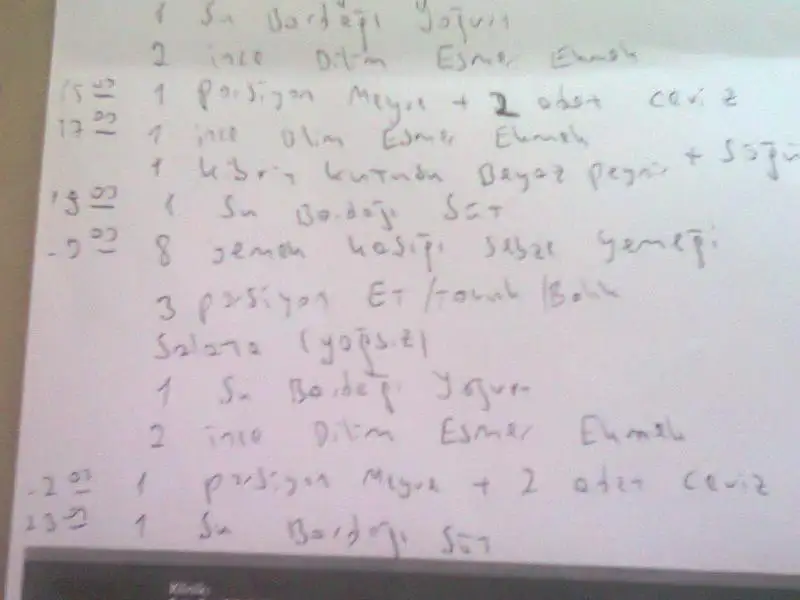 1 Su Bardağı Yoğurt
2 ince Dilim Esmer Ekmek
15 00 1 porsiyon Meyve + 2 adet ceviz
17 00 1 ince Dilim Esmer Ekmek
1 kibrit kutusu Beyaz peynir +
1 Su Bardağı Süt
8 yemek kaşığı sebze yemeği
3 porsiyon ET/Tavuk/Balık
Salata (yağsız)
1 Su Bardağı Yoğurt
2 ince Dilim Esmer Ekmek
1 porsiyon Meyve + 2 adet ceviz
23 00 1 Su Bardağı Süt